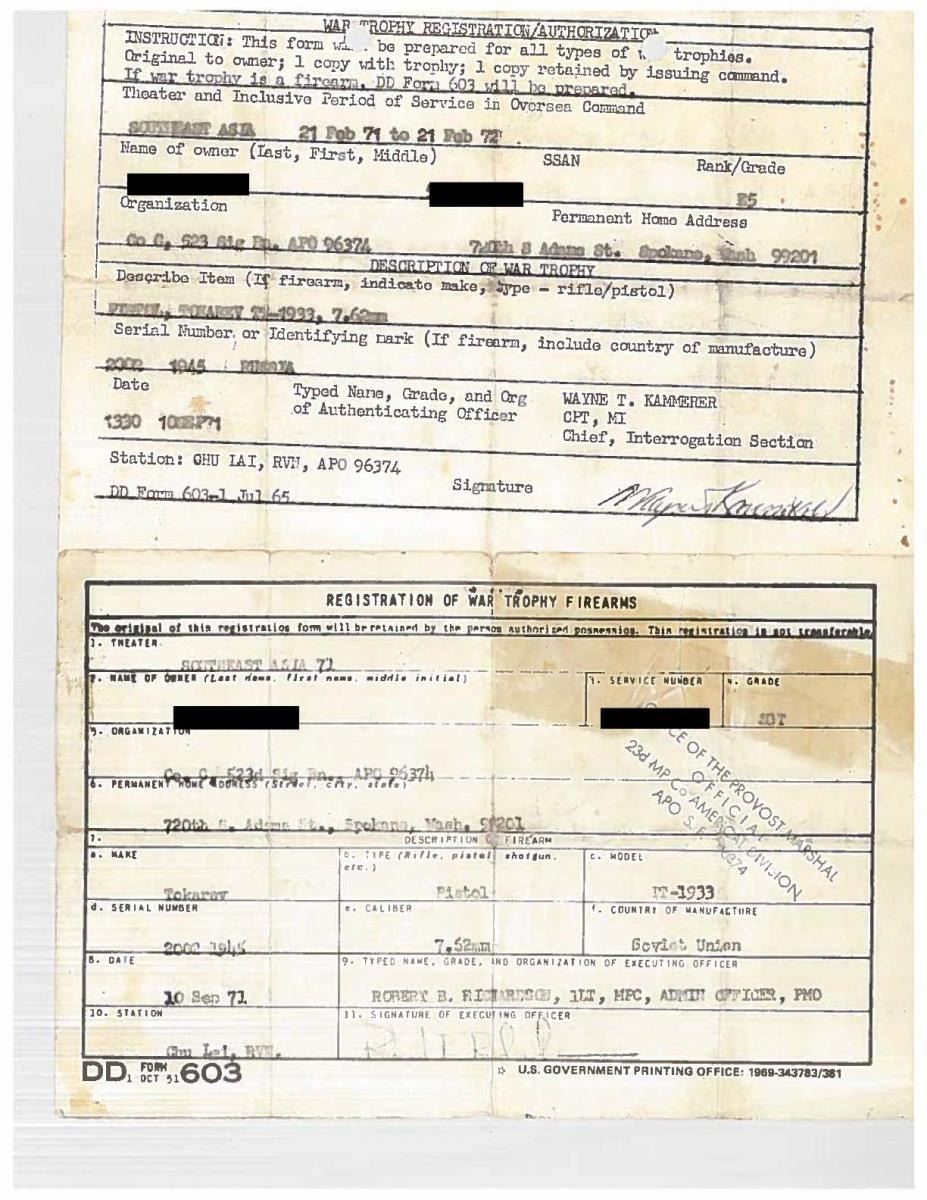 WAR TROPHY REGISTRATION/AUTHORIZATION
INSTRUCTION: This form be prepared for all types of trophies.
Original to owner; 1 copy with trophy; 1 copy retained by issuing command.
If war trophy is a firearm, DD Form 603 will be prepared.
Theater and Inclusive Period of Service in Oversea Command
SOUTHEAST ASIA 21 Feb 71 to 21 Feb 72
Name of owner (Last, First, Middle) SSAN Rank/Grade
E5
Organization Permanent Home Address
Co C, 523 Sig Bn. APO 96374 720th S Adams St. Spokane, Wash 99201
DESCRIPTION OF WAR TROPHY
Describe Item (If firearm, indicate make, type - rifle/pistol)
PISTOL, TOKAREV TT-1933, 7.62mm
Serial Number or Identifying mark (If firearm, include country of manufacture)
2002 1945 RUSSIA
Date Typed Name, Grade, and Org WAYNE T. KAMMERER
of Authenticating Officer CPT, MI
1330 10SEP71 Chief, Interrogation Section
Station: CHU LAI, RVN, APO 96374
DD Form 603-1 Jul 65 Signature
REGISTRATION OF WAR TROPHY FIREARMS
The original of this registration form will be retained by the person authorized possession. This registration is not transferable
1. THEATER
SOUTHEAST ASIA 71
2. NAME OF OWNER (Last name, first name, middle initial) 3. SERVICE NUMBER 4. GRADE
SGT
5. ORGANIZATION
Co. C, 523d Sig Bn., APO 96374
6. PERMANENT HOME ADDRESS (Street, city, state)
720th S. Adams St., Spokane, Wash. 99201
OFFICE OF THE PROVOST MARSHAL
OFFICIAL
23d MP Co AMERICAL DIVISION
APO S.F. 96374
7. DESCRIPTION OF FIREARM
a. MAKE b. TYPE (Rifle, pistol, shotgun, etc.) c. MODEL
Tokarev Pistol TT-1933
d. SERIAL NUMBER e. CALIBER f. COUNTRY OF MANUFACTURE
2002 1945 7.62mm Soviet Union
8. DATE 9. TYPED NAME, GRADE, AND ORGANIZATION OF EXECUTING OFFICER
10 Sep 71 ROBERT B. RICHARDSON, 1LT, MPC, ADMIN OFFICER, PMO
10. STATION 11. SIGNATURE OF EXECUTING OFFICER
Chu Lai, RVN.
DD FORM 1 OCT 51 603 ☆ U.S. GOVERNMENT PRINTING OFFICE: 1969-343783/381